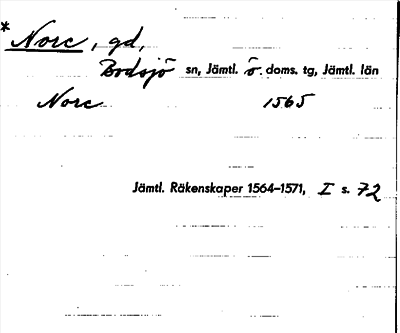 * Nore, gd,
Bodsjö sn, Jämtl. ö. doms. tg, Jämtl. län
Nore 1565
Jämtl. Räkenskaper 1564–1571, I s. 72